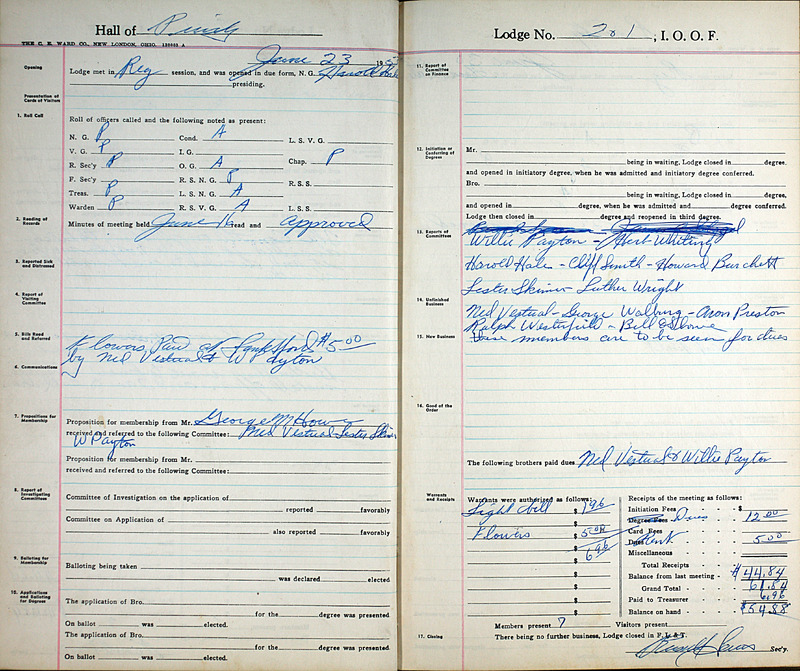 Hall of Purdy
THE C. E. WARD CO., NEW LONDON, OHIO. 130805 A
June 23 19
Opening
Lodge met in Reg session, and was opened in due form, N. G. Harold Hale
presiding.
Presentation of Cards of Visitors
1. Roll Call
Roll of officers called and the following noted as present:
N. G. P Cond. A L. S. V. G.
V. G. P I. G.
R. Sec'y P O. G. A Chap. P
F. Sec'y R. S. N. G. P R. S. S.
Treas. P L. S. N. G. A
Warden P R. S. V. G. A L. S. S.
2. Reading of Records
Minutes of meeting held June 16 read and approved
3. Reported Sick and Distressed
4. Report of Visiting Committee
5. Bills Read and Referred
Flowers Paid $5.00
by Ned Vestual & W Payton
6. Communications
7. Propositions for Membership
Proposition for membership from Mr. George M Howe
received and referred to the following Committee: Ned Vestual Lester Skiner
W Payton
Proposition for membership from Mr.
received and referred to the following Committee:
8. Report of Investigating Committee
Committee of Investigation on the application of
reported favorably
Committee on Application of
also reported favorably
9. Balloting for Membership
Balloting being taken
was declared elected
10. Applications and Balloting for Degrees
The application of Bro.
for the degree was presented
On ballot was elected.
The application of Bro.
for the degree was presented
On ballot was elected.
Lodge No. 201, I. O. O. F.
11. Report of Committee on Finance
12. Initiation or Conferring of Degrees
Mr.
being in waiting, Lodge closed in degree,
and opened in initiatory degree, when he was admitted and initiatory degree conferred.
Bro.
being in waiting, Lodge closed in degree,
and opened in degree, when he was admitted and degree conferred.
Lodge then closed in degree and reopened in third degree.
13. Reports of Committees
Willie Payton - Hert Whiting
Harold Hale - Cliff Smith - Howard Burchett
Lester Skiner - Luther Wright
14. Unfinished Business
Ned Vestual - George Walburg - Oron Preston
Ralph Westerfield - Bill
15. New Business
These members are to be seen for dues
16. Good of the Order
The following brothers paid dues Ned Vestual & Willie Payton
Warrants and Receipts
Warrants were authorized as follows:
Light bill $ 1.96
Flowers $ 5.00
$ 6.96
$
$
$
$
$
Receipts of the meeting as follows:
Initiation Fees $
Degree Fees Dues 12.00
Card Fees
Dues Rent 5.00
Miscellaneous
Total Receipts
Balance from last meeting $44.84
Grand Total 61.84
Paid to Treasurer 6.96
Balance on hand $54.88
Members present 7 Visitors present
17. Closing
There being no further business, Lodge closed in F. L. & T.
Sec'y.